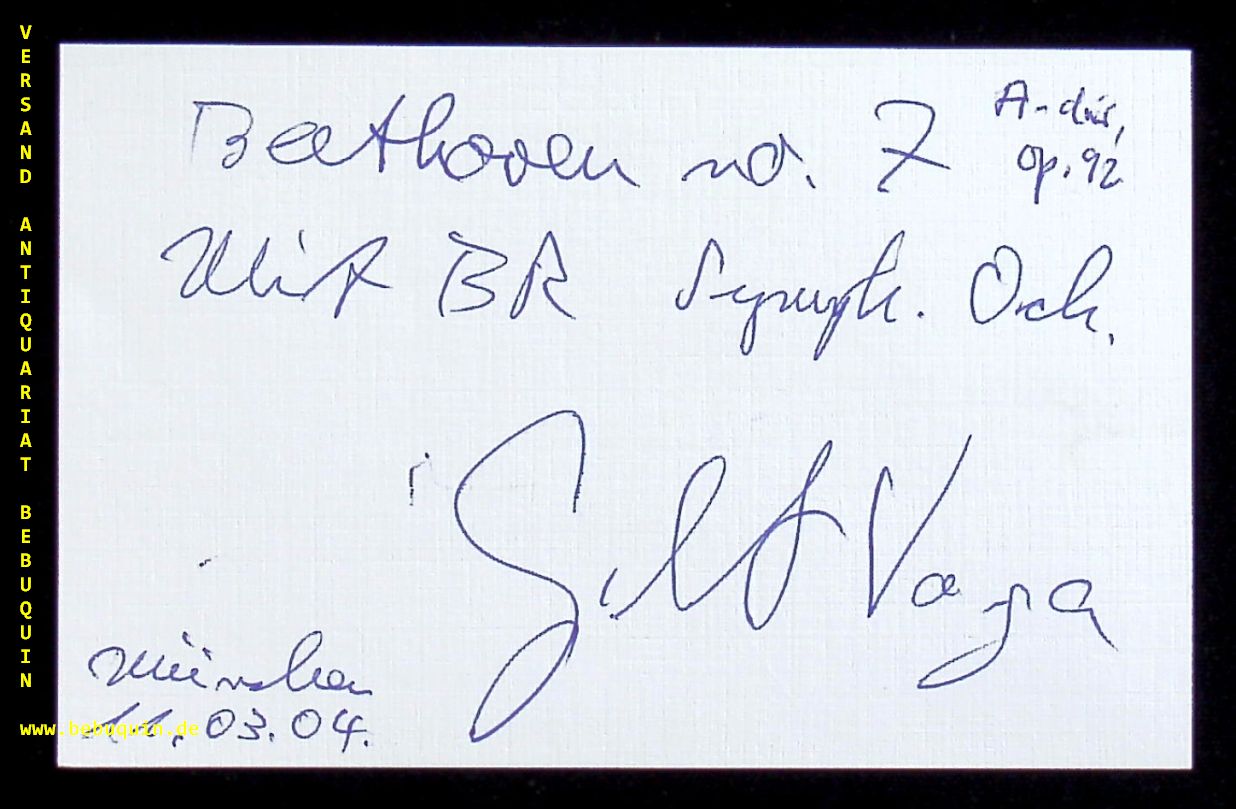 VERSAND ANTIQUARIAT BEBUQUIN
Beethoven no. 7 A-dur, op. 92
Mit BR Symph. Orch.
Gilbt Varga
München
11.03.04.
www.bebuquin.de